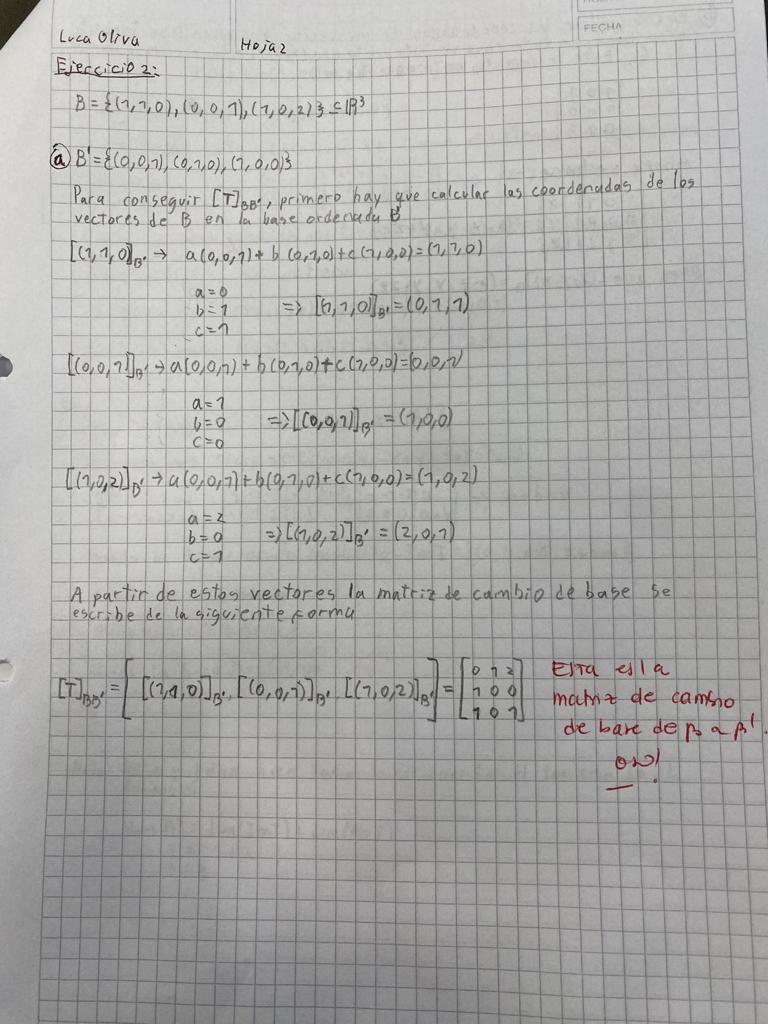 FECHA
Luca Oliva
Hoja 2
Ejercicio 2:
B = {(1,1,0), (0,0,1), (1,0,2)} ⊆ ℝ³
ⓐ B' = {(0,0,1), (0,1,0), (1,0,0)}
Para conseguir [T]BB', primero hay que calcular las coordenadas de los
vectores de B en la base ordenada B'
[(1,1,0)]B' → a(0,0,1) + b(0,1,0) + c(1,0,0) = (1,1,0)
a=0
b=1 => [(1,1,0)]B' = (0,1,1)
c=1
[(0,0,1)]B' → a(0,0,1) + b(0,1,0) + c(1,0,0) = (0,0,1)
a=1
b=0 => [(0,0,1)]B' = (1,0,0)
c=0
[(1,0,2)]B' → a(0,0,1) + b(0,1,0) + c(1,0,0) = (1,0,2)
a=2
b=0 => [(1,0,2)]B' = (2,0,1)
c=1
A partir de estos vectores la matriz de cambio de base se
escribe de la siguiente forma
[T]BB' = [ [(1,1,0)]B', [(0,0,1)]B', [(1,0,2)]B' ] = [0 1 2
1 0 0
1 0 1]
Esta es la
matriz de cambio
de base de β a β'.